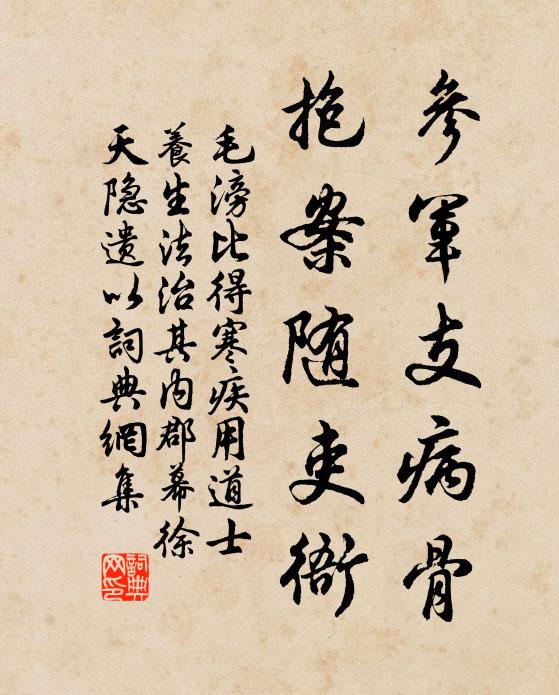 參軍支病骨
抱案随吏衙
毛滂比得寒疾用道士
養生法治其内郡幕徐
天隐遗以詞典網集
詞典网印